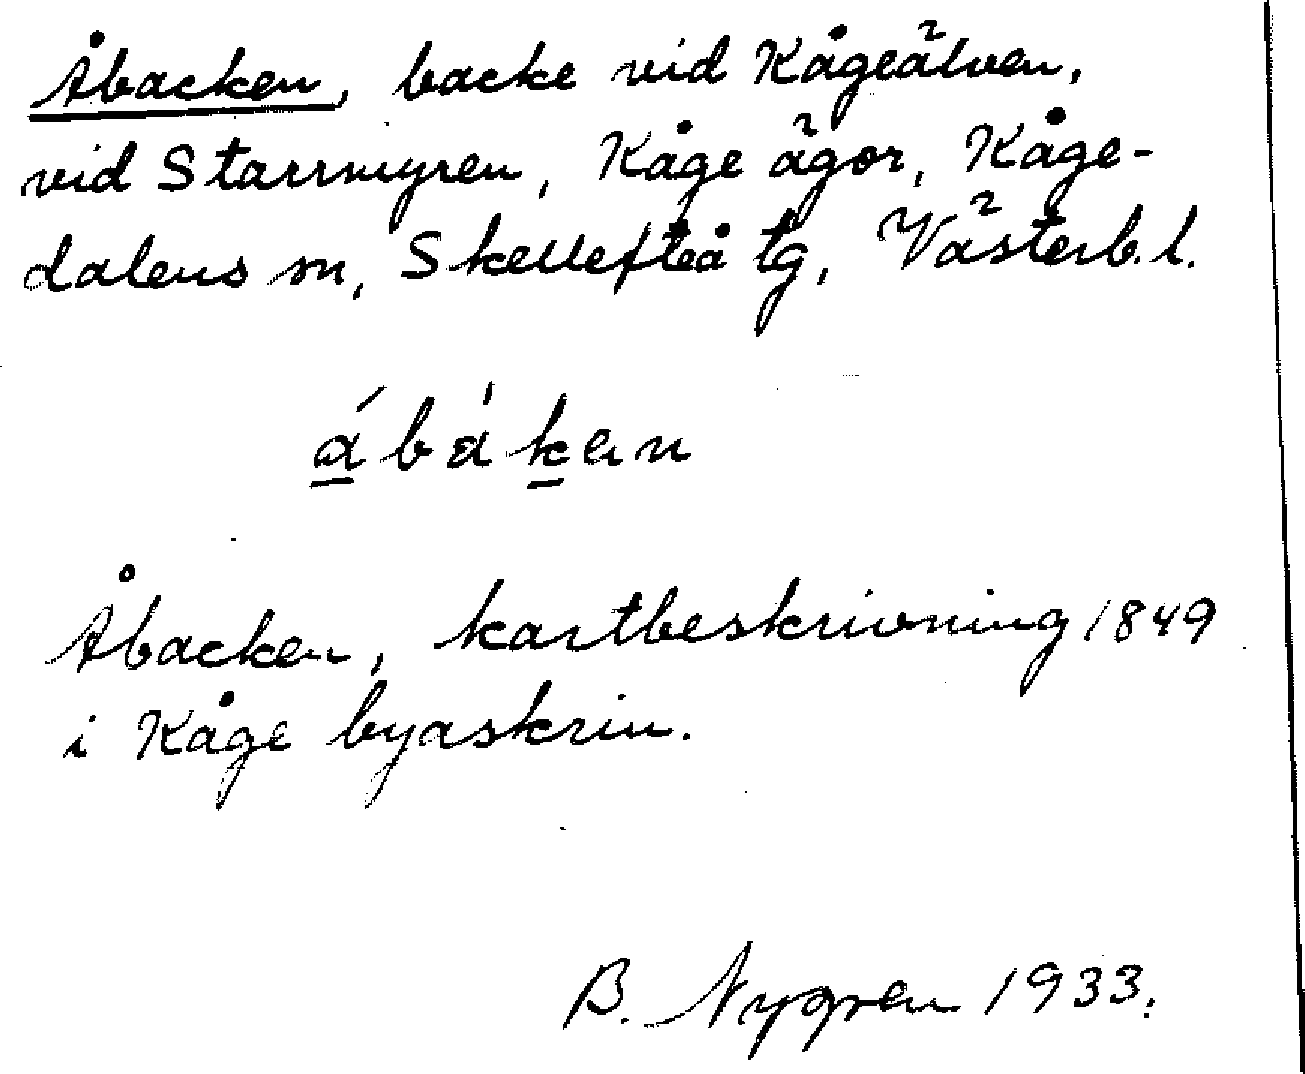 Åbacken, backe vid Kågeälven,
vid Starrmyren, Kåge ägor, Kåge-
dalens sn, Skellefteå tg, Västerb. l.
á̱bàḵen
Åbacken, kartbeskrivning 1849
i Kåge byaskrin.
B. Nygren 1933.